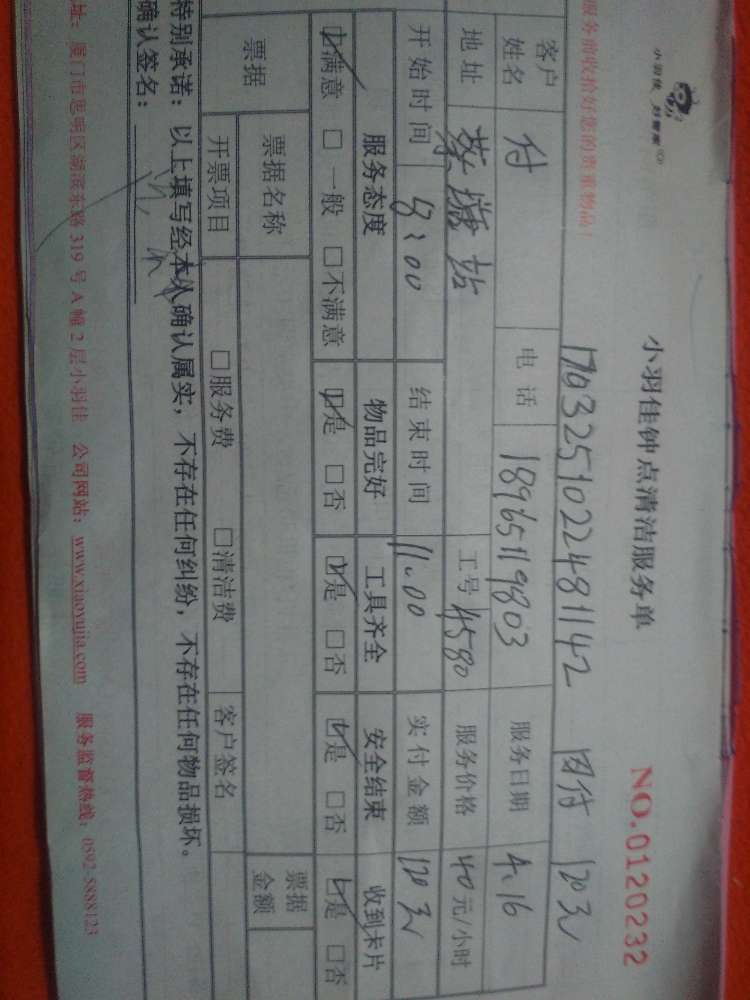 小羽佳 好管家
小羽佳钟点清洁服务单
NO.0120232
服务前收拾好您的贵重物品！
1703251022481142 团付 120元
客户姓名 付 电话 18965119803 服务日期 4.16
地址 蔡塘站 工号 4580 服务价格 40元/小时
开始时间 8:00 结束时间 11:00 实付金额 120元
服务态度 物品完好 工具齐全 安全结束 收到卡片
☑满意 □一般 □不满意 ☑是 □否 ☑是 □否 ☑是 □否 ☑是 □否
票据 票据名称 票据金额
开票项目 □服务费 □清洁费 客户签名
特别承诺：以上填写经本人确认属实，不存在任何纠纷，不存在任何物品损坏。
确认签名：
址：厦门市思明区湖滨东路319号A幢2层小羽佳 公司网站：www.xiaoyujia.com 服务监督热线：0592-5888123